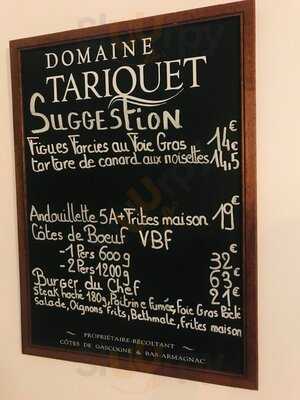 DOMAINE
TARIQUET
SUGGESTION
Figues Farcies au Foie Gras 14€
tartare de canard aux noisettes 14,5
Andouillette 5A + Frites maison 19€
Côtes de Boeuf VBF
- 1 Pers 600g 32€
- 2 Pers 1200g 63€
Burger du Chef 21€
Steak haché 180g, Poitrine fumée, Foie Gras Poêlé
salade, Oignons frits, Bethmale, frites maison
PROPRIÉTAIRE-RÉCOLTANT
CÔTES DE GASCOGNE & BAS-ARMAGNAC